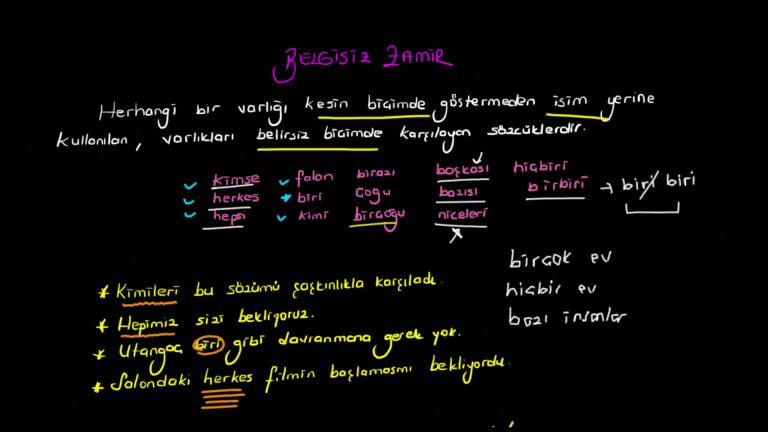 BELGİSİZ ZAMİR
Herhangi bir varlığı kesin biçimde göstermeden isim yerine
kullanılan, varlıkları belirsiz biçimde karşılayan sözcüklerdir.
kimse falan birazı başkası hiçbiri
herkes biri çoğu bazısı birbiri → biri biri
hepsi kimi birçoğu niceleri
birçok ev
hiçbir ev
bazı insanlar
* Kimileri bu sözümü şaşkınlıkla karşıladı.
* Hepimiz sizi bekliyoruz.
* Utangaç biri gibi davranmana gerek yok.
* Salondaki herkes filmin başlamasını bekliyordu.